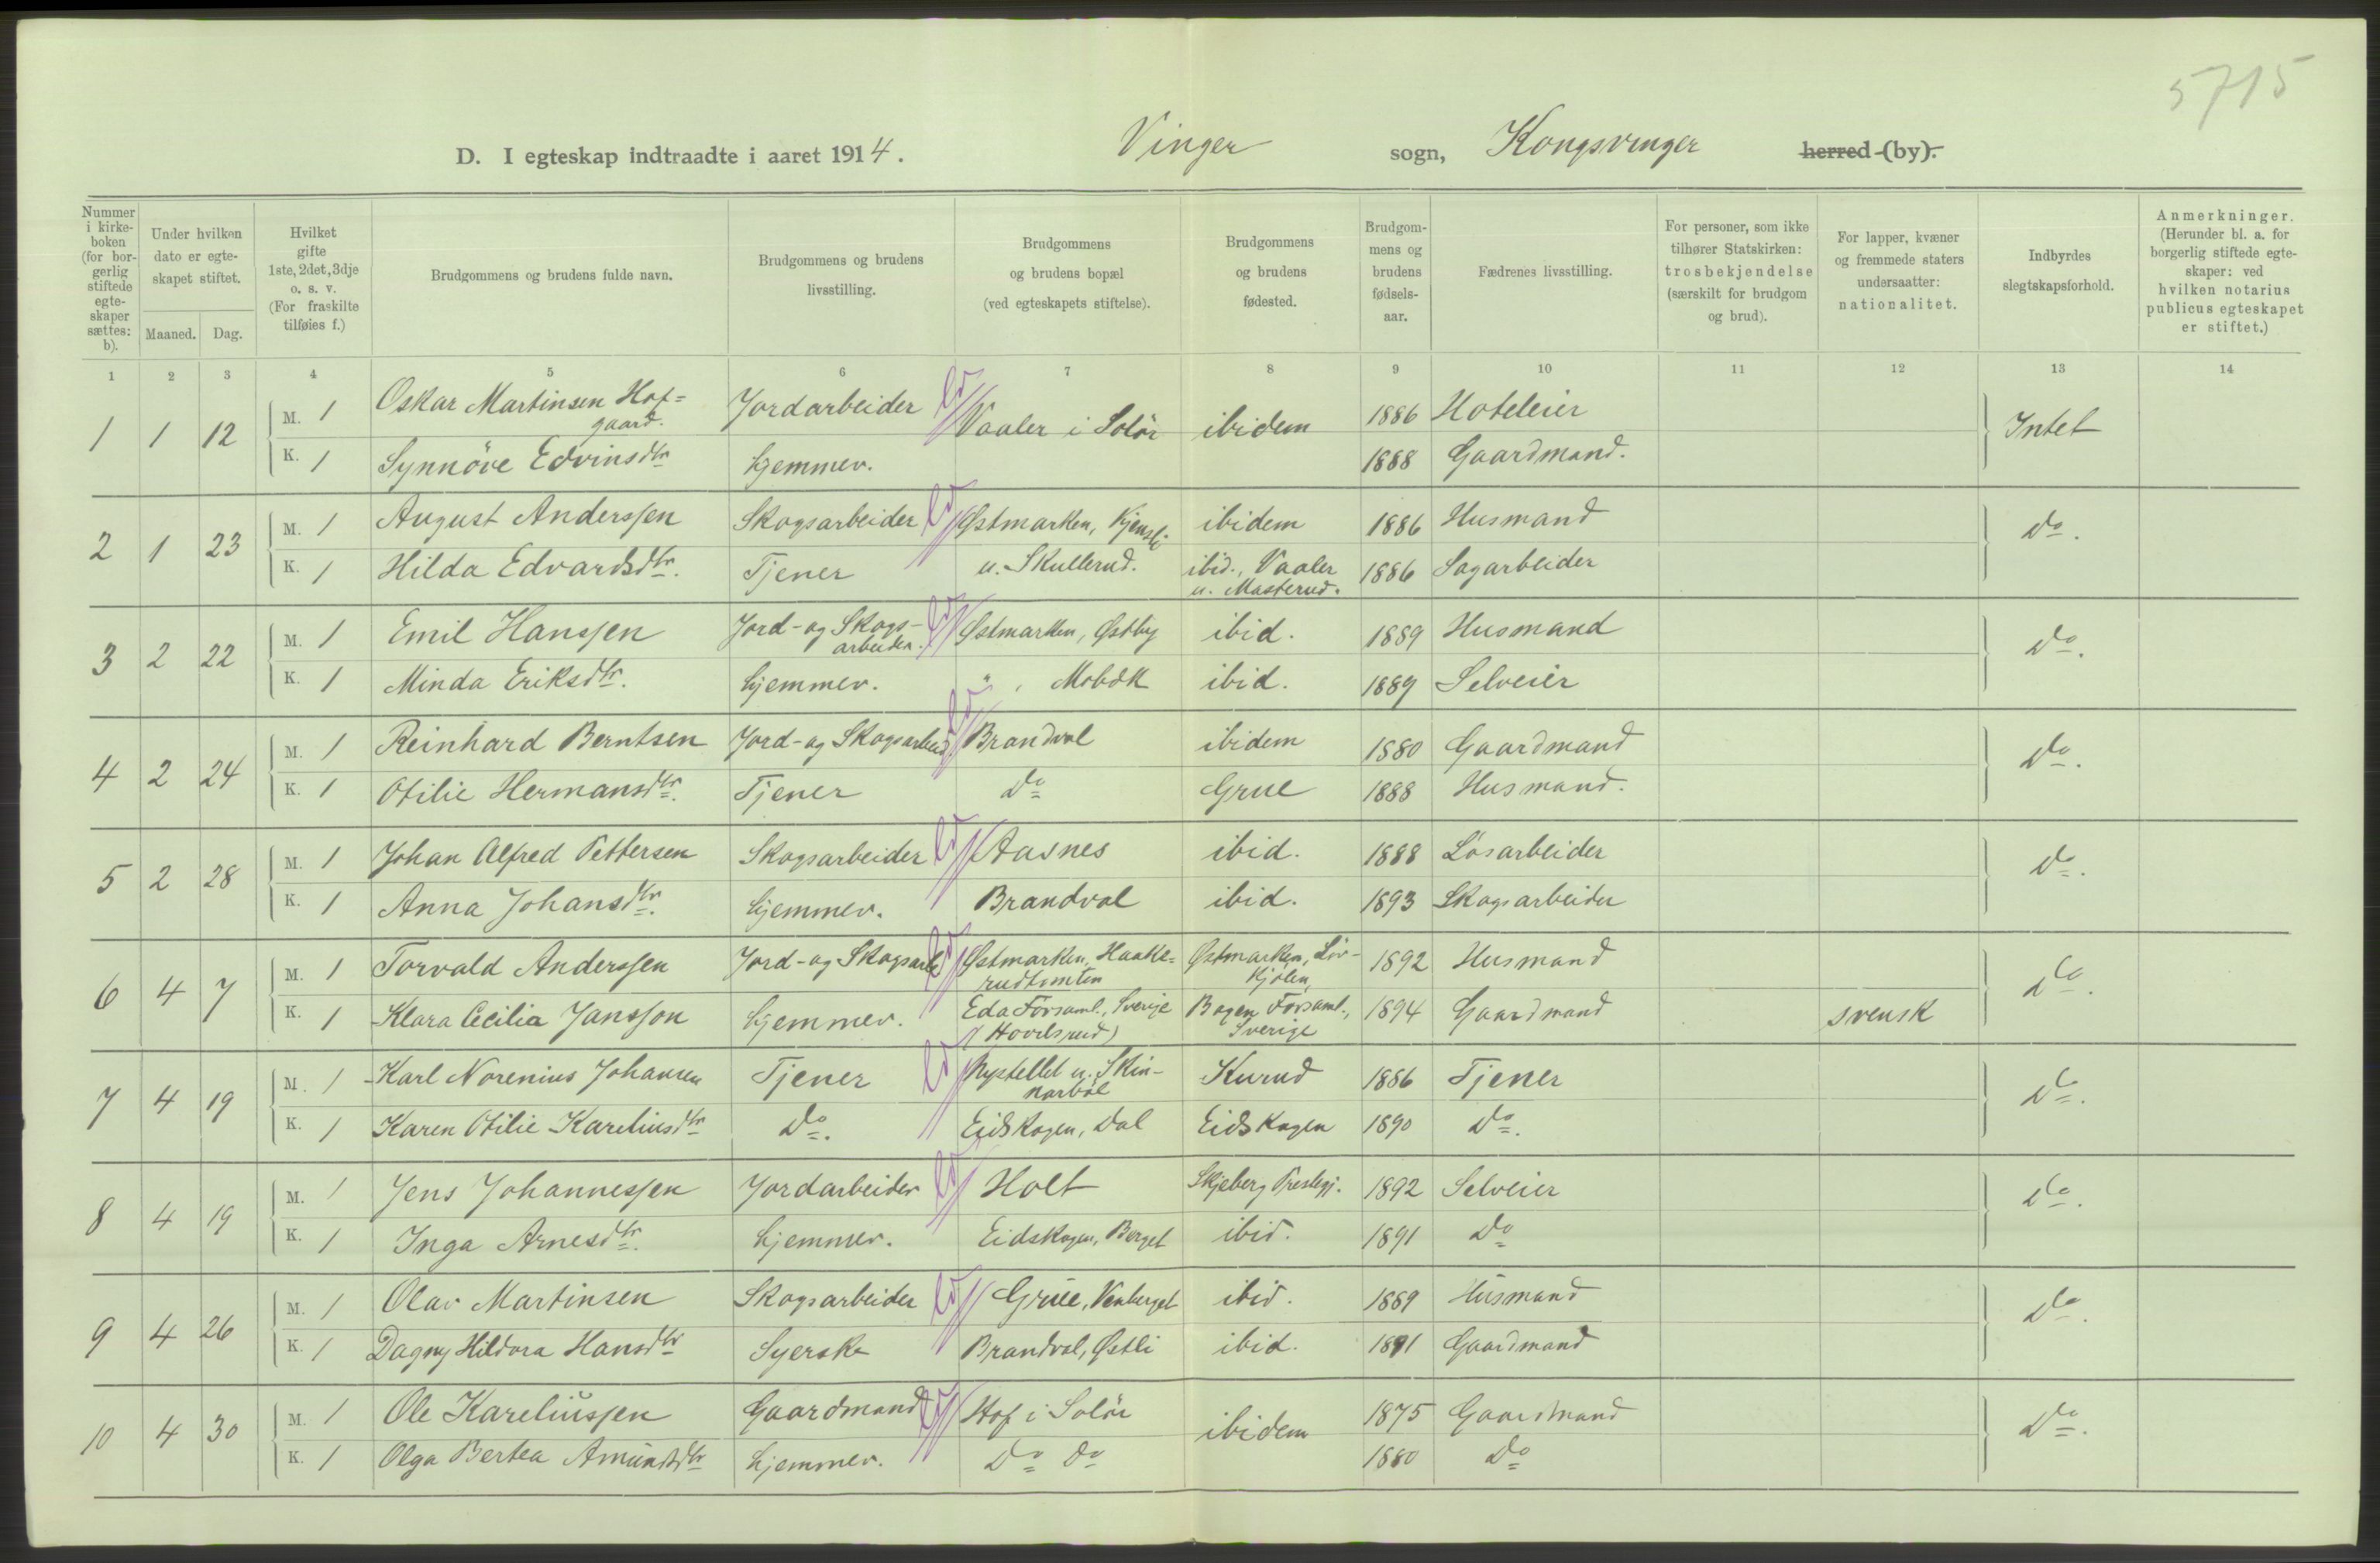 5715
D. I egteskap indtraadte i aaret 1914. Vinger sogn, Kongsvinger herred (by).
Nummer i kirke-boken (for bor-gerlig stiftede egte-skaper sættes: b).
Under hvilken dato er egte-skapet stiftet.
Maaned. Dag.
Hvilket gifte 1ste, 2det, 3dje o. s. v. (For fraskilte tilføies f.)
Brudgommens og brudens fulde navn.
Brudgommens og brudens livsstilling.
Brudgommens og brudens bopæl (ved egteskapets stiftelse).
Brudgommens og brudens fødested.
Brudgom-mens og brudens fødsels-aar.
Fædrenes livsstilling.
For personer, som ikke tilhører Statskirken: trosbekjendelse (særskilt for brudgom og brud).
For lapper, kvæner og fremmede staters undersaatter: nationalitet.
Indbyrdes slegtskapsforhold.
Anmerkninger. (Herunder bl. a. for borgerlig stiftede egte-skaper: ved hvilken notarius publicus egteskapet er stiftet.)
1 2 3 4 5 6 7 8 9 10 11 12 13 14
1 1 12 M. 1 Oskar Martinsen Hof=gaard. Jordarbeider Vaaler i Solör ibidem 1886 Hoteleier Intet
K. 1 Synnöve Edvinsdtr hjemmev. 1888 Gaardmand.
2 1 23 M. 1 August Anderssen Skogsarbeider Østmarken, Kjensli ibidem 1886 Husmand Do.
K. 1 Hilda Edvardsdtr. Tjener u. Skullerud. ibid., Vaaler u. Masterud. 1886 Sagarbeider
3 2 22 M. 1 Emil Hanssen Jord- og Skogs-arbeider. Østmarken, Østby ibid. 1889 Husmand Do.
K. 1 Minda Eriksdtr. hjemmev. " , Mobæk ibid. 1889 Selveier
4 2 24 M. 1 Reinhard Berntsen Jord- og Skogsarbeid Brandval ibidem 1880 Gaardmand Do.
K. 1 Otilie Hermansdtr. Tjener Do Grue 1888 Husmand.
5 2 28 M. 1 Johan Alfred Pettersen Skogsarbeider Aasnes ibid. 1888 Løsarbeider Do.
K. 1 Anna Johansdtr. hjemmev. Brandval ibid. 1893 Skogsarbeider
6 4 7 M. 1 Torvald Anderssen Jord- og Skogsarb Østmarken, Haake=rudtomten Østmarken, Löv-kjölen 1892 Husmand Do.
K. 1 Klara Cecilia Jansson hjemmev. Eda Forsaml., Sverige (Hovilsrud) Bogen Forsaml., Sverige 1894 Gaardmand svensk
7 4 19 M. 1 Karl Norenius Johansen Tjener Rystellet u. Skin-narböl Kurud 1886 Tjener Do.
K. 1 Karen Otilie Kareliusdtr Do. Eidskogen, Dal Eidskogen 1890 Do.
8 4 19 M. 1 Jens Johannessen Jordarbeider Holt Skjeberg Prestegj. 1892 Selveier Do.
K. 1 Inga Arnesdtr. hjemmev. Eidskogen, Berget ibid. 1891 Do
9 4 26 M. 1 Olav Martinsen Skogsarbeider Grue, Venberget ibid. 1889 Husmand Do.
K. 1 Dagny Hildora Hansdtr Syerske Brandval, Østli ibid. 1891 Gaardmand
10 4 30 M. 1 Ole Kareliussen Gaardmand Hof i Solör ibidem 1875 Gaardmand Do.
K. 1 Olga Bertea Amundsdtr hjemmev. Do Do 1880 Do